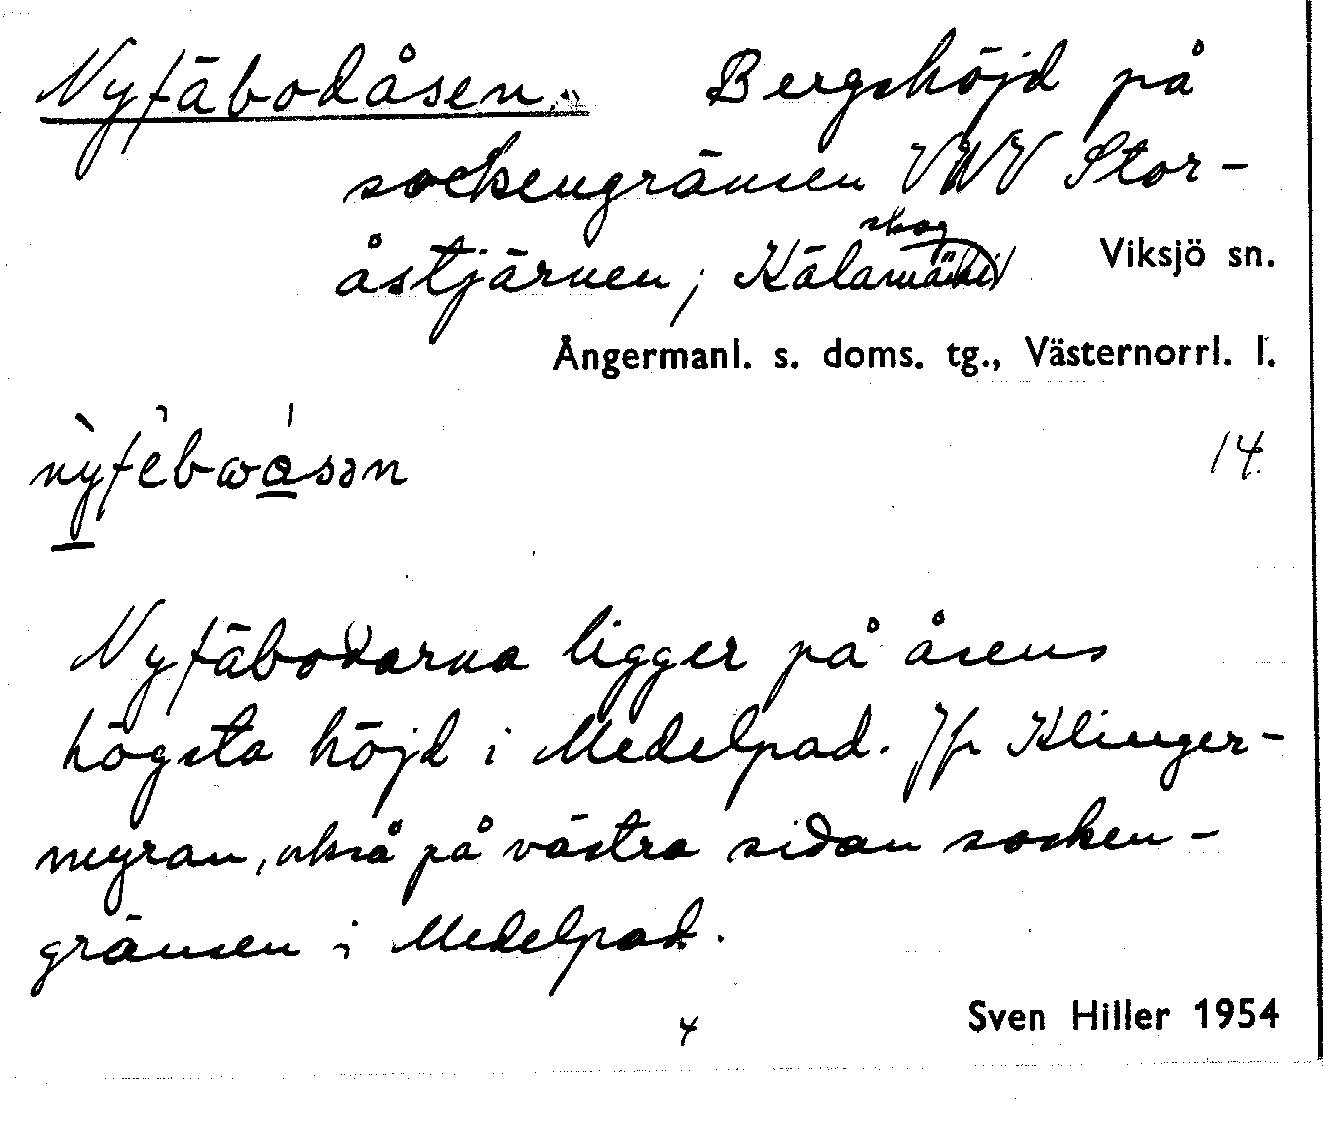 Nyfäbodåsen. Bergshöjd på
sockengränsen VNV Stor-
åstjärnen; Kälaskog
Viksjö sn.
Ångermanl. s. doms. tg., Västernorrl. l.
14
Nyfäbodarna ligger på åsens
högsta höjd i Medelpad. Jfr Klinger-
myran, också på västra sidan socken-
gränsen i Medelpad.
4
Sven Hiller 1954